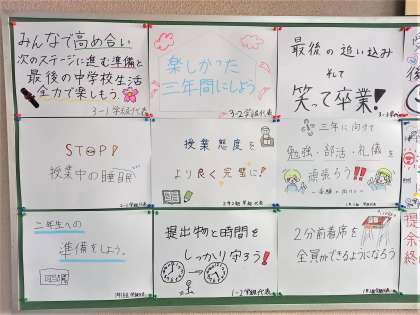 みんなで高め合い
次のステージに進む準備と
最後の中学校生活
全力で楽しもう。
3-1学級代表
楽しかった
三年間にしよう
3-2学級代表
最後の追い込み
そして
笑って卒業!
STOP!
授業中の睡眠
授業態度を
より良く完璧に!
三年に向けて
勉強・部活・礼儀を
頑張ろう!!
二年生への
準備をしよう。
提出物と時間を
しっかり守ろう!
1-2学級代表
2分前着席を
全員ができるようになろう